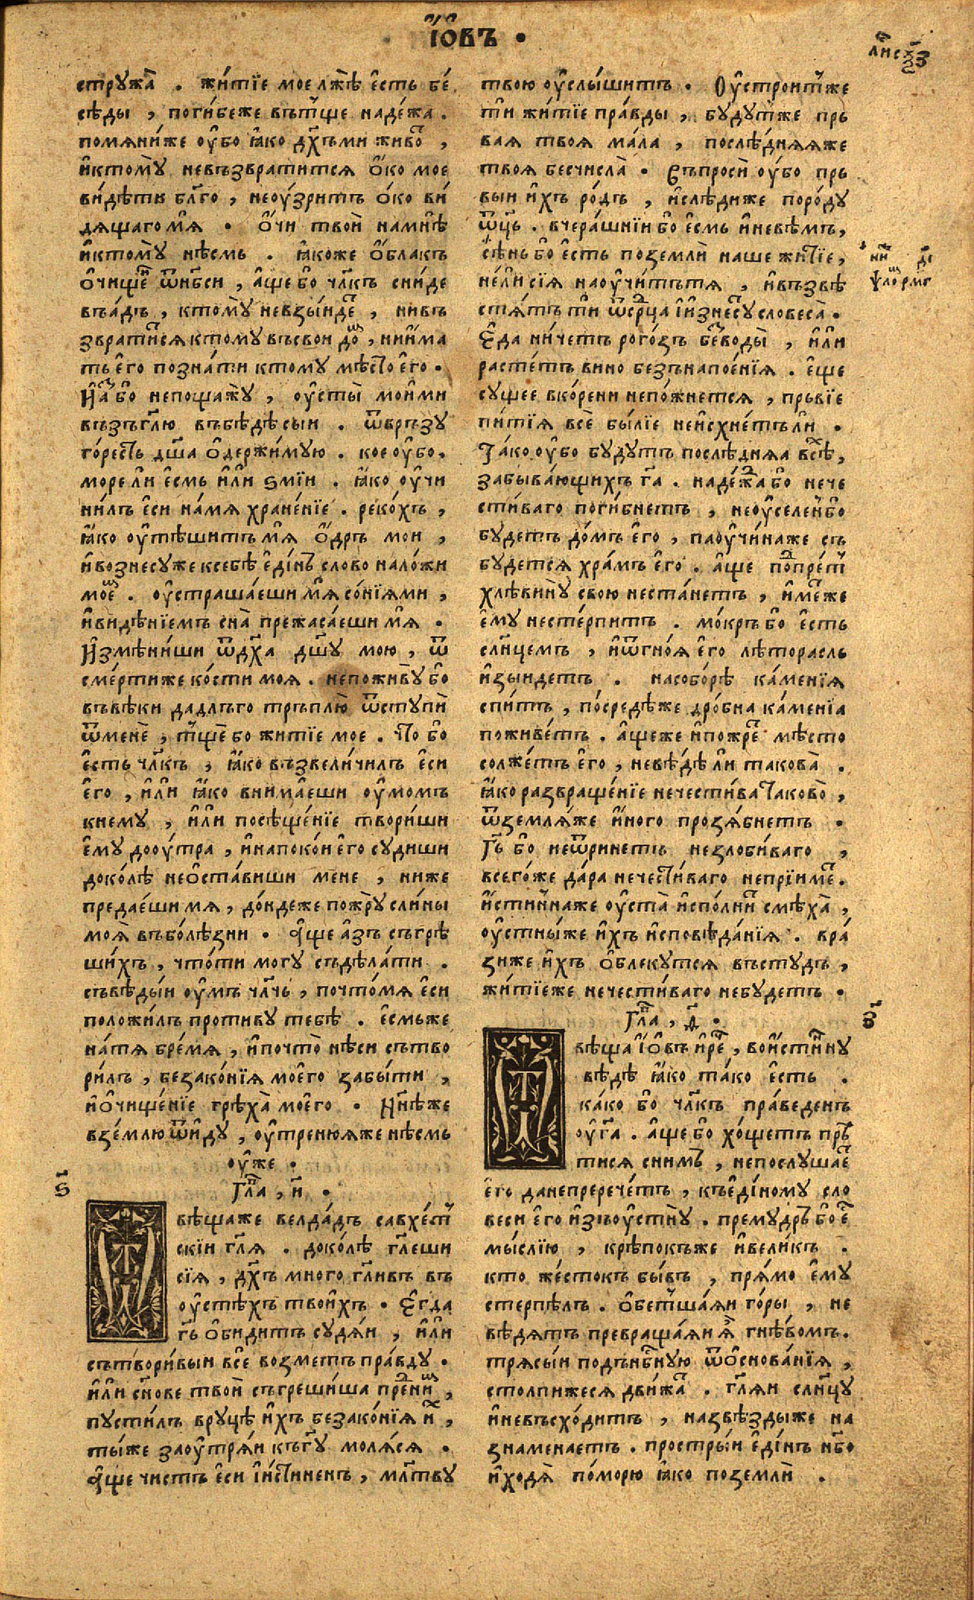 І҆ѡ҆въ
стружа̀ . житїе мое лжѣ е҆сть бе
сѣды , погибеже вътще надежа .
помяниже оу҆бо ꙗ҆ко дх҃ъ ми живо ,
и҆ктому невъзвратится о҆ко мое
видѣти бл҃го , неоу҆зритъ о҆ко ви
дящаго мя . о҆чи твои на мнѣ
и҆ктому нѣсмь . ꙗ҆коже о҆блакъ
о҆чищенъ ѿ нб҃си , аще бо чл҃къ сниде
въ адъ , ктому невзыиде , нивъ
звратится ктому въ свои до , ниима
ть его познати ктому мѣсто его .
Но а҆зъ бо непощажу , оу҆сты моими
възъгл҃ю въ бѣдѣ сыи . ѿвръзу
горесть дш҃а о҆держимую . кое оу҆бо
море ли есмь и҆ли ѕмїи . ꙗ҆ко оу҆чи
нилъ еси на мя хранение . рекохъ ,
ꙗ҆ко оу҆тѣшитъ мя о҆дръ мои ,
и҆вознесу же ксебѣ единъ слово на ложи
мое . оу҆страшаеши мя сонїями ,
и҆видѣнїемъ сна прежасаеши мя .
И҆змѣниши ѿ дх҃а дш҃у мою , ѿ
смерти же кости моя . непоживу бо
въ вѣки да длъго тръплю ѿступи
ѿ мене , тще бо житїе мое . Что бо
есть чл҃къ , ꙗ҆ко възвеличилъ еси
его , и҆ли ꙗ҆ко внимаеши оу҆момъ
кнему , и҆ли посѣщенїе твориши
ему до оу҆тра , и҆напокои его судиши
доколѣ неоставиши мене , ниже
предаеши мя , дондеже пожру слины
моя въ болѣзни . Аще азъ съгрѣ
шихъ , что ти могу съдѣлати .
съвѣдыи оу҆мъ чл҃чь , почто мя еси
положилъ противу тебѣ . есмь же
на тя бремя , и҆почто нѣси сътво
рилъ , безаконїя моего забыти ,
и҆очищенїе грѣха моего . Ннѣ же
в землю ѿиду , оу҆тренюя же нѣсмь
оу҆же .
Гл҃ва , и҃ .
ѕ҃
Ѿвѣщаже велдадъ савхеит
скїи гл҃я . доколѣ гл҃еши
сїя , дх҃ъ многогл҃ивъ въ
оу҆стѣхъ твоихъ . Егда
г҃ь о҆бидитъ судяи , и҆ли
сътворивыи все возметъ правду .
и҆ли сн҃ове твои съгрешиша пред ни ,
пустилъ в руцѣ и҆хъ безаконїя и҆ ,
ты же заоу҆тряи къ г҃у моляся .
Аще чистъ еси и҆ истиненъ , мл҃тву
твою оу҆слышитъ . Оу҆строит же
ти житїе правды , будут же прь
вая твоя мала , послѣдняя же
твоя бесчисла . Съпроси оу҆бо прь
выи и҆хъ родъ , и҆слѣди же породу
ѿц҃ь . вчерашнїи бо есмь и҆невѣмъ ,
сѣнь бо есть поземли наше житїе ,
не ли сїя наоу҆читъ тя , и҆възвѣ
стятъ ти ѿ срд҃ца и҆изнесу словеса .
Еда ничетъ рогозъ без воды , и҆ли
растетъ вино безнапоенїя . еще
сущее в корени непожнется , прьвїе
питїя все былїе неисхнетъ ли .
Тако оу҆бо будутъ послѣдняа всѣ ,
забывающихъ г҃а . надежа бо нече
стиваго погибнетъ , неоу҆селен бо
будетъ домъ его , паоу҆чина же съ
будется храмъ его . аще подопрет
хлѣвину свою нестанетъ , имѣ же
ему нестерпитъ . мокръ бо есть
слнцемъ , и҆ ѿ гноя его лѣторасль
и҆зыидетъ . на соборѣ каменїя
спитъ , посредѣ же дробна каменїа
поживетъ . аще же и҆ пожре мѣсто
солжетъ его , невѣдѣ ли такова .
ꙗ҆ко развращенїе нечестива таково ,
ѿ земля же и҆ного прозябнетъ .
Г҃ь бо неѿринетъ незлобиваго ,
всегоже дара нечестиваго неприиме .
и҆стинна же оу҆ста и҆сполнит смѣха ,
оу҆стны же и҆хъ и҆сповѣданїя . вра
зи же и҆хъ о҆блекутся въ студъ ,
житїе же нечестиваго небудетъ .
Гл҃ва , ѳ҃ .
Ѿвѣща І҆ѡ҆въ и҆ рече , воистинну
вѣдѣ ꙗ҆ко тако есть .
како бо чл҃къ праведенъ
оу҆ г҃а . аще бо хощетъ пръ
тися сним , непослушае
его да непреречетъ , къ единому сло
веси его и҆зъ оу҆стну . премудръ бо е
мыслию , крѣпокъ же и҆великъ .
кто жестокъ бывъ , прямо ему
стерпѣлъ . о҆бетшаяи горы , не
вѣдятъ превращаяи я гнѣвомъ .
трясыи поднебную ѿ основанїя ,
столпи же ся движа . гл҃яи слнцу
и҆невъсходитъ , на звѣзды же на
знаменаетъ . прострыи единъ нб҃о
и҆ходя поморю ꙗ҆ко поземли .